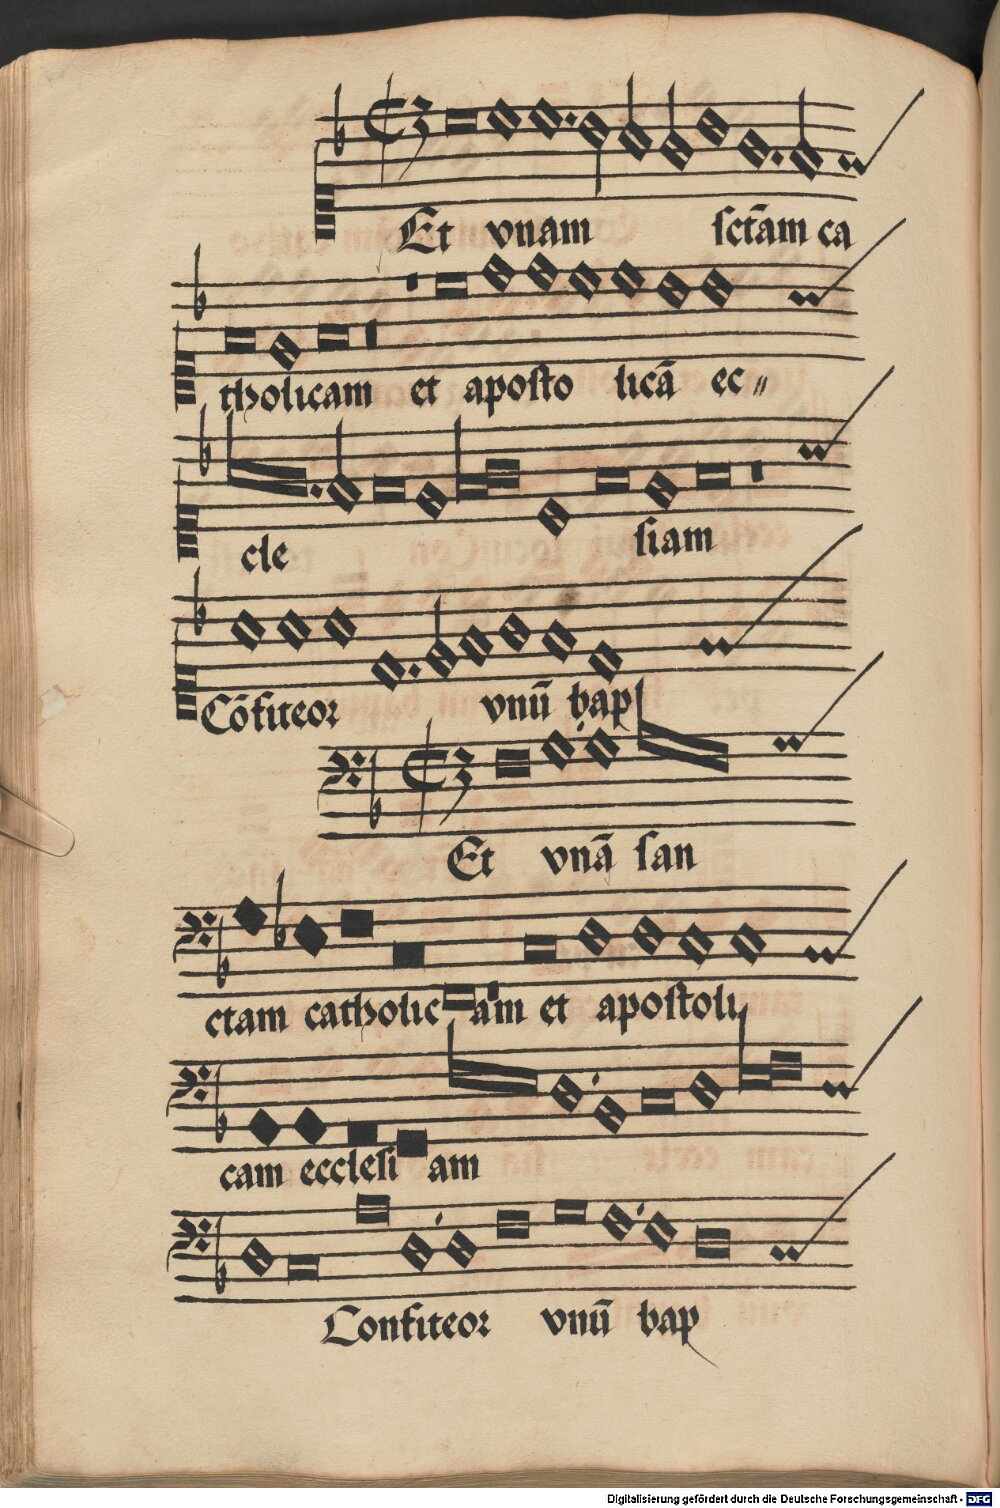 Et vnam sctām ca
tholicam et aposto licā ec〃
cle siam
Cōfiteor vnū bap
Et vnā san
ctam catholic am et apostoli
cam ecclesi am
Confiteor vnū bap
Digitalisierung gefördert durch die Deutsche Forschungsgemeinschaft - DFG